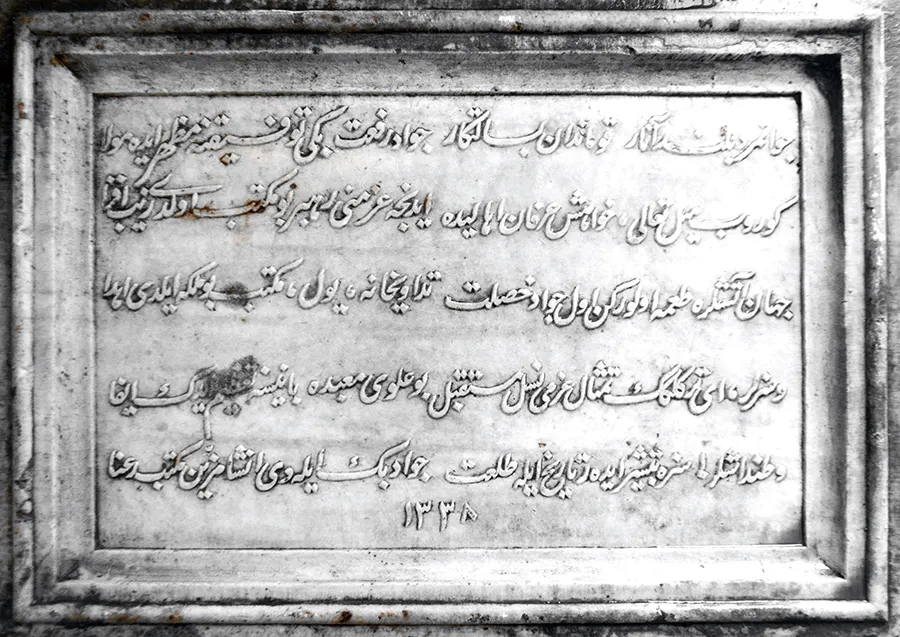 جوانمرد بلند آثار تو خاندان بسالتكار جواد رفعت بكی توفیقنه مظهر ایده مولا
كوروب سیل تعالی، خواهش عرفان اهالیده ایدنجه عزمنی رهبر بو مكتب اولدی زینت افزا
جهان آتشلره طعمه اولوركن اول جواد خصلت تداویخانه، یول، مكتب بو ملكه ایلدی اهدا
ای تمثال عزمی نسل مستقبل بو علوی معبده بانیسنه تعظیم ایفا
وطنداشلر تبشیر ایده ر تاریخ ایله طلعت جواد بك ایله دی انشا مزین مكتب رعنا
١٣٣٨